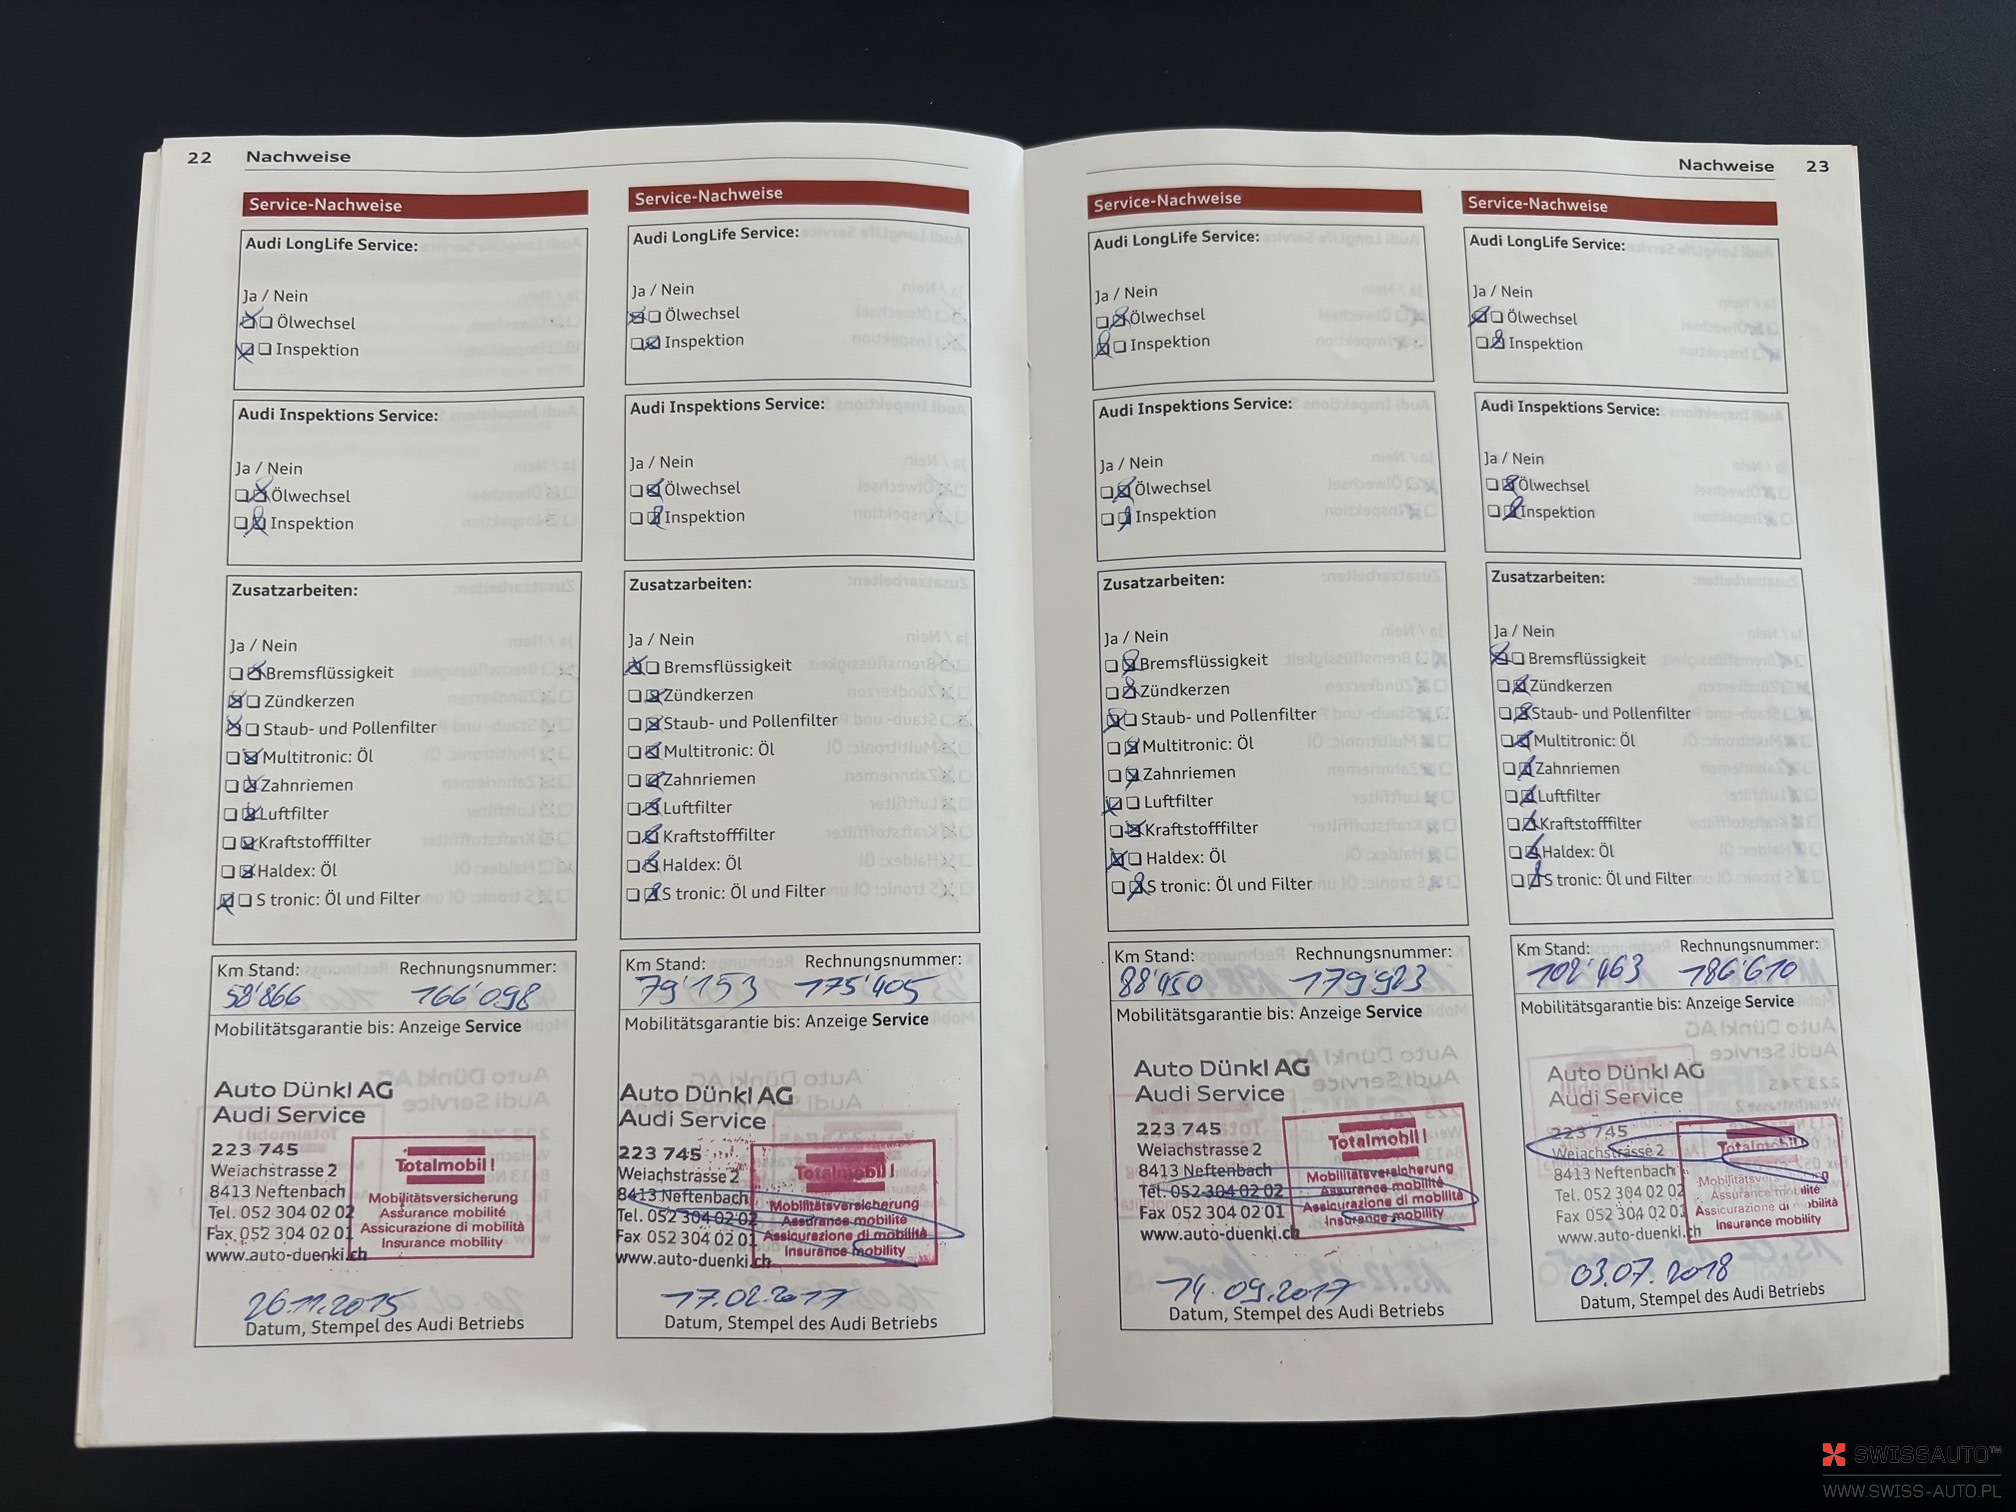 22 Nachweise
Service-Nachweise
Audi LongLife Service:
Ja / Nein
Ölwechsel
Inspektion
Audi Inspektions Service:
Ja / Nein
Ölwechsel
Inspektion
Zusatzarbeiten:
Ja / Nein
Bremsflüssigkeit
Zündkerzen
Staub- und Pollenfilter
Multitronic: Öl
Zahnriemen
Luftfilter
Kraftstofffilter
Haldex: Öl
S tronic: Öl und Filter
Km Stand: Rechnungsnummer:
58'866 166'098
Mobilitätsgarantie bis: Anzeige Service
Auto Dünki AG
Audi Service
223 745
Weiachstrasse 2
8413 Neftenbach
Tel. 052 304 02 02
Fax 052 304 02 01
www.auto-duenki.ch
Totalmobil!
Mobilitätsversicherung
Assurance mobilité
Assicurazione di mobilità
Insurance mobility
26.11.2015
Datum, Stempel des Audi Betriebs
Service-Nachweise
Audi LongLife Service:
Ja / Nein
Ölwechsel
Inspektion
Audi Inspektions Service:
Ja / Nein
Ölwechsel
Inspektion
Zusatzarbeiten:
Ja / Nein
Bremsflüssigkeit
Zündkerzen
Staub- und Pollenfilter
Multitronic: Öl
Zahnriemen
Luftfilter
Kraftstofffilter
Haldex: Öl
S tronic: Öl und Filter
Km Stand: Rechnungsnummer:
79'153 175'405
Mobilitätsgarantie bis: Anzeige Service
Auto Dünki AG
Audi Service
223 745
Weiachstrasse 2
8413 Neftenbach
Tel. 052 304 02 02
Fax 052 304 02 01
www.auto-duenki.ch
Totalmobil!
Mobilitätsversicherung
Assurance mobilité
Assicurazione di mobilità
Insurance mobility
17.02.2017
Datum, Stempel des Audi Betriebs
Nachweise 23
Service-Nachweise
Audi LongLife Service:
Ja / Nein
Ölwechsel
Inspektion
Audi Inspektions Service:
Ja / Nein
Ölwechsel
Inspektion
Zusatzarbeiten:
Ja / Nein
Bremsflüssigkeit
Zündkerzen
Staub- und Pollenfilter
Multitronic: Öl
Zahnriemen
Luftfilter
Kraftstofffilter
Haldex: Öl
S tronic: Öl und Filter
Km Stand: Rechnungsnummer:
88'450 179'923
Mobilitätsgarantie bis: Anzeige Service
Auto Dünki AG
Audi Service
223 745
Weiachstrasse 2
8413 Neftenbach
Tel. 052 304 02 02
Fax 052 304 02 01
www.auto-duenki.ch
Totalmobil!
Mobilitätsversicherung
Assurance mobilité
Assicurazione di mobilità
Insurance mobility
14.09.2017
Datum, Stempel des Audi Betriebs
Service-Nachweise
Audi LongLife Service:
Ja / Nein
Ölwechsel
Inspektion
Audi Inspektions Service:
Ja / Nein
Ölwechsel
Inspektion
Zusatzarbeiten:
Ja / Nein
Bremsflüssigkeit
Zündkerzen
Staub- und Pollenfilter
Multitronic: Öl
Zahnriemen
Luftfilter
Kraftstofffilter
Haldex: Öl
S tronic: Öl und Filter
Km Stand: Rechnungsnummer:
102'463 186'610
Mobilitätsgarantie bis: Anzeige Service
Auto Dünki AG
Audi Service
223 745
Weiachstrasse 2
8413 Neftenbach
Tel. 052 304 02 02
Fax 052 304 02 01
www.auto-duenki.ch
Totalmobil!
Assurance mobilité
Assicurazione di mobilità
Insurance mobility
03.07.2018
Datum, Stempel des Audi Betriebs
SWISSAUTO™
WWW.SWISS-AUTO.PL